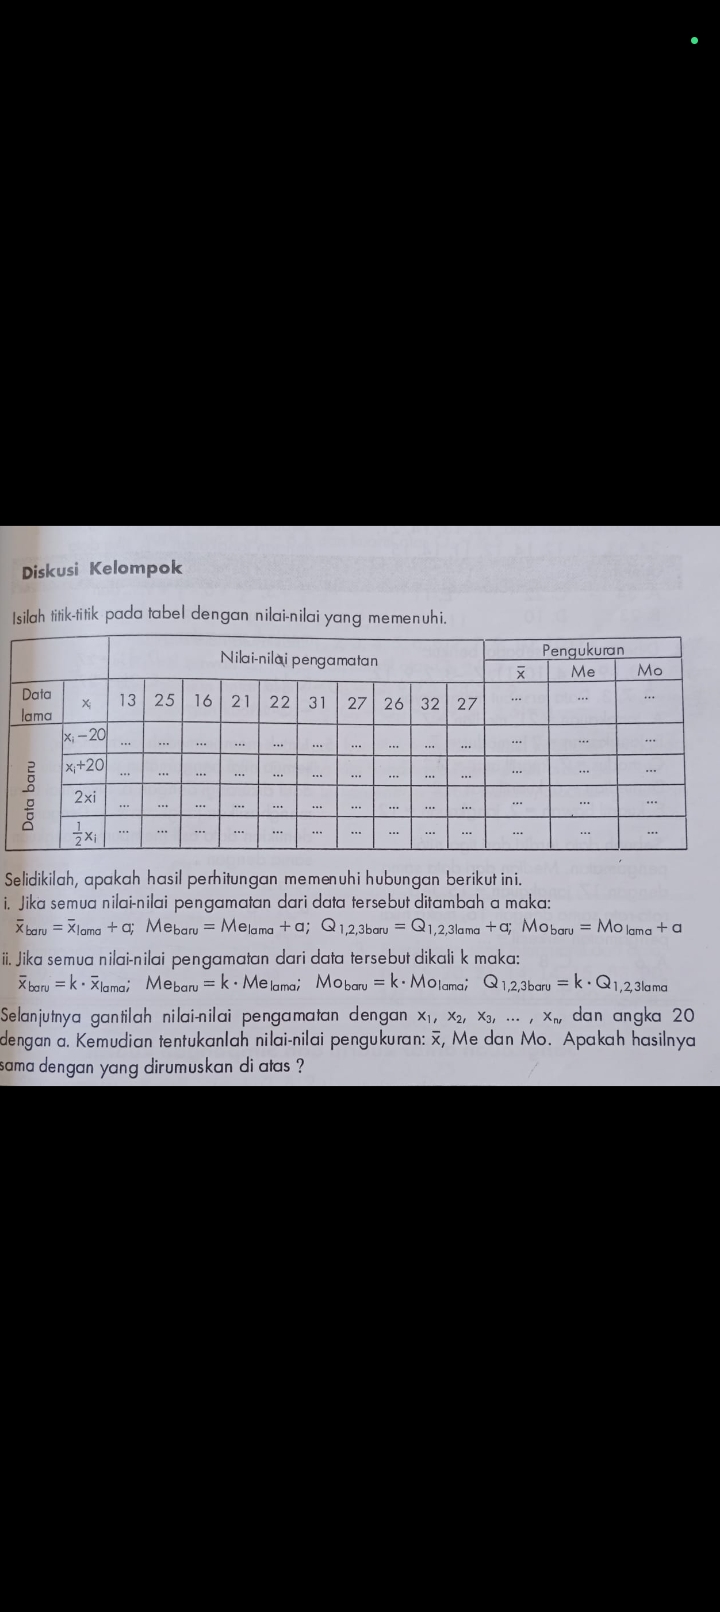 Diskusi Kelompok
Isilah titik-titik pada tabel dengan nilai-nilai yang memenuhi.
Nilai-nilai pengamatan Pengukuran
x̄ Me Mo
Data lama xᵢ 13 25 16 21 22 31 27 26 32 27 ... ... ...
Data baru
xᵢ – 20 ... ... ... ... ... ... ... ... ... ... ... ... ...
xᵢ+20 ... ... ... ... ... ... ... ... ... ... ... ... ...
2xi ... ... ... ... ... ... ... ... ... ... ... ... ...
½xᵢ ... ... ... ... ... ... ... ... ... ... ... ... ...
Selidikilah, apakah hasil perhitungan memenuhi hubungan berikut ini.
i. Jika semua nilai-nilai pengamatan dari data tersebut ditambah a maka:
x̄ baru = x̄ lama + a; Me baru = Me lama + a; Q 1,2,3baru = Q 1,2,3lama + a; Mo baru = Mo lama + a
ii. Jika semua nilai-nilai pengamatan dari data tersebut dikali k maka:
x̄ baru = k · x̄ lama; Me baru = k · Me lama; Mo baru = k · Mo lama; Q 1,2,3baru = k · Q 1,2,3lama
Selanjutnya gantilah nilai-nilai pengamatan dengan x₁, x₂, x₃, ... , xₙ, dan angka 20
dengan a. Kemudian tentukanlah nilai-nilai pengukuran: x̄, Me dan Mo. Apakah hasilnya
sama dengan yang dirumuskan di atas ?